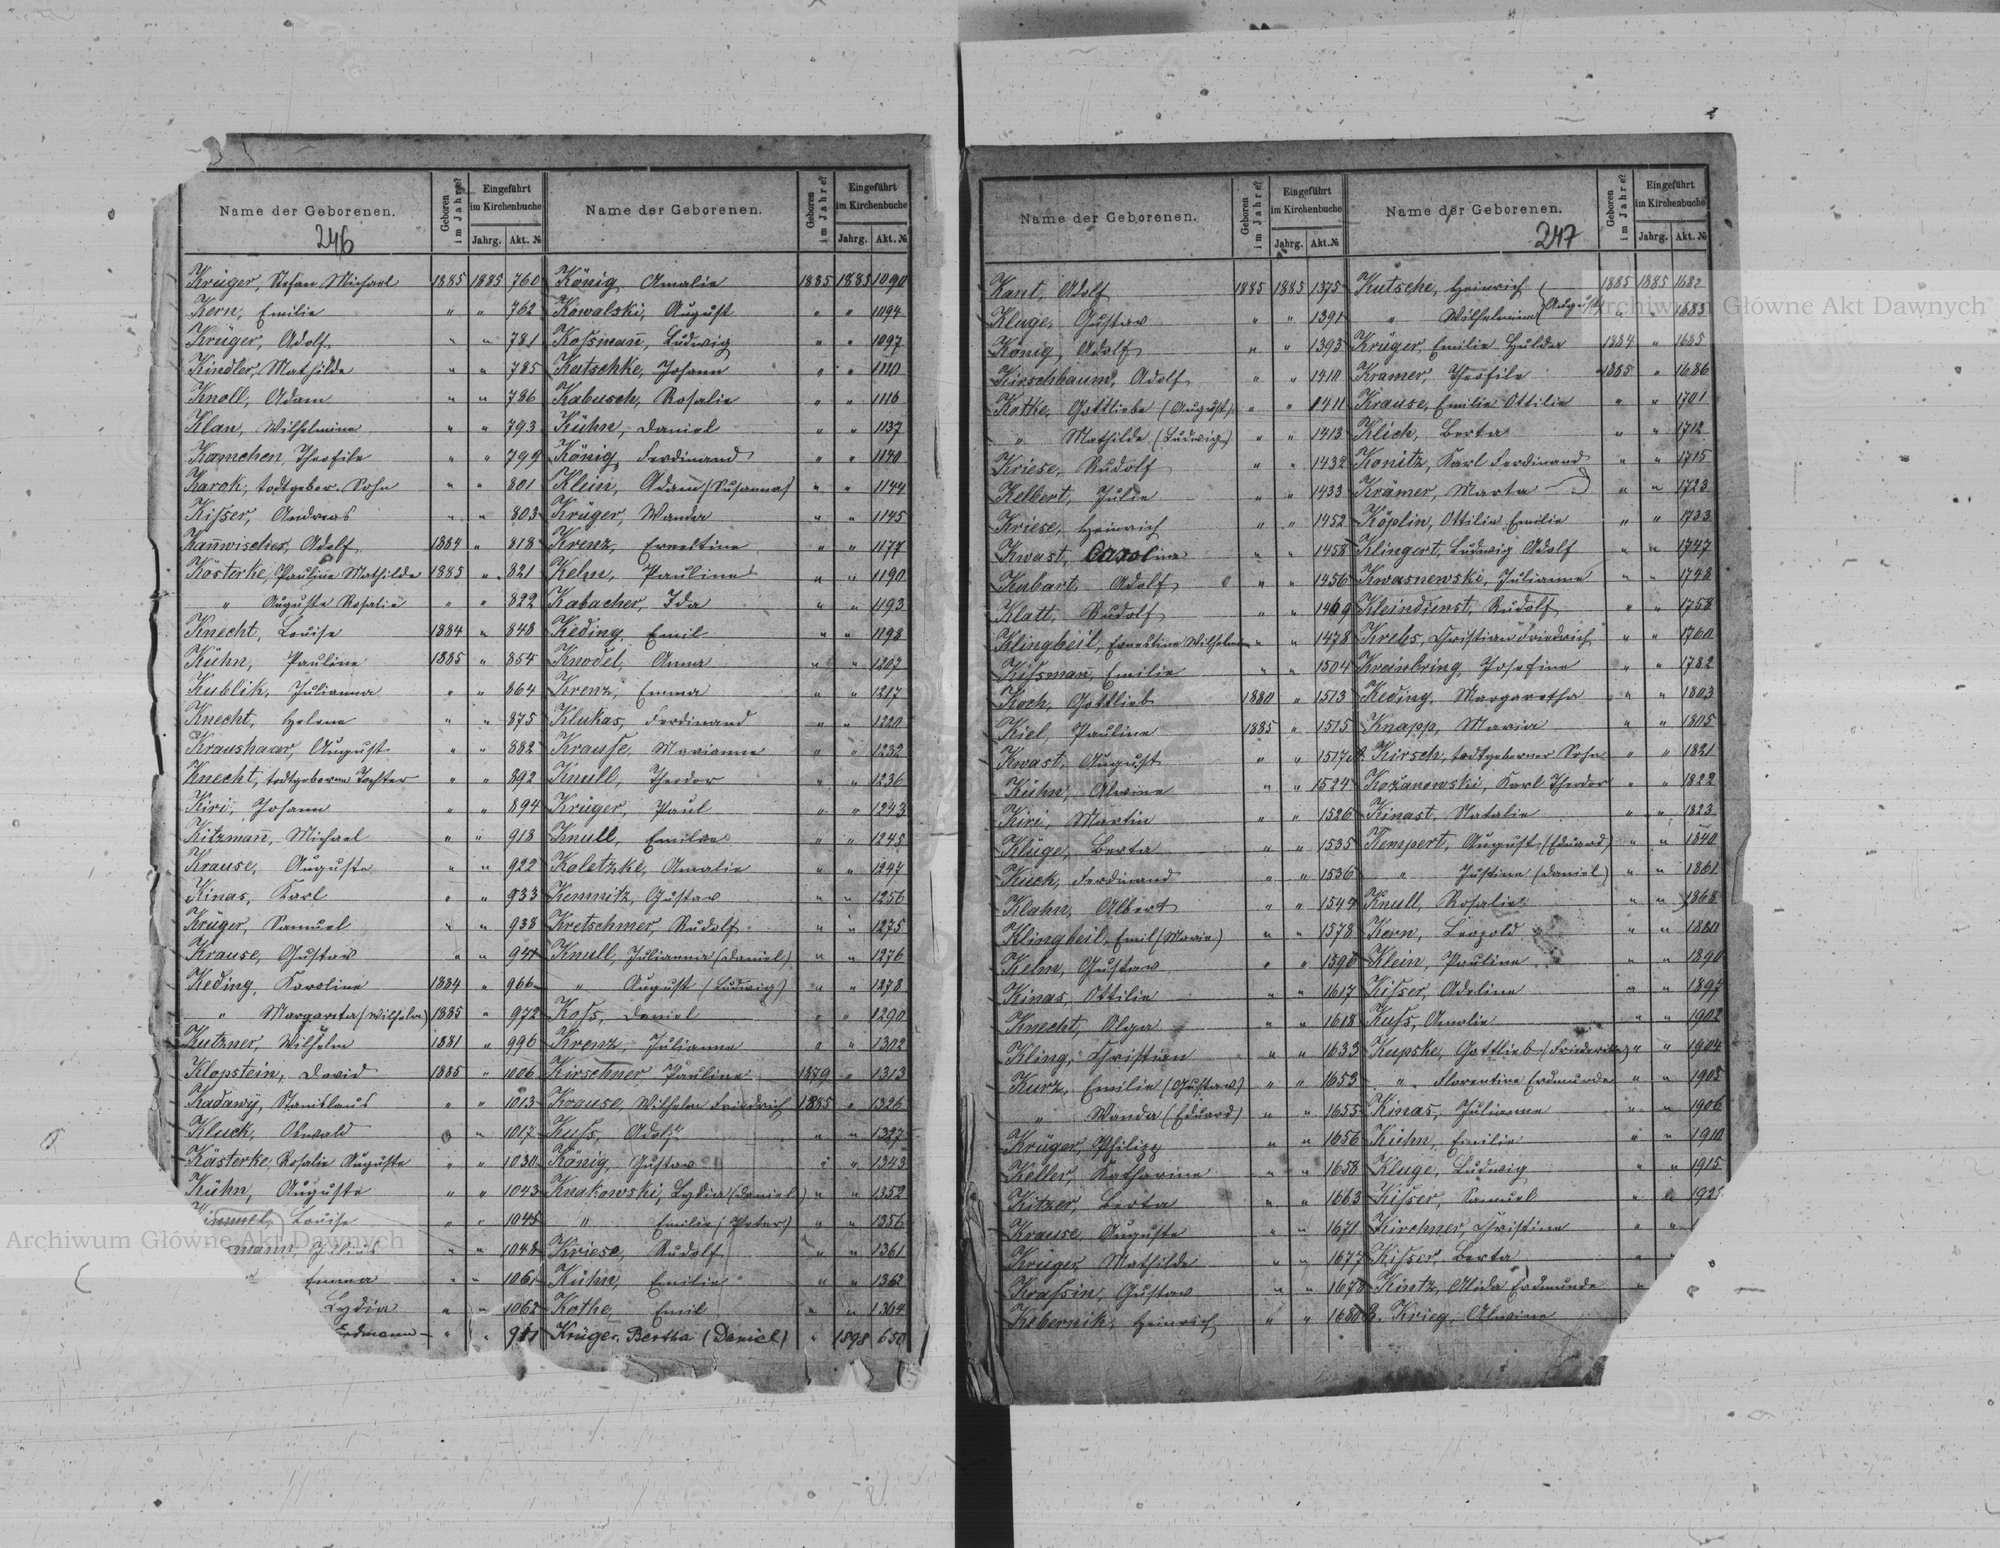 Name der Geborenen.
Geboren im Jahre?
Eingeführt im Kirchenbuche
Jahrg. Akt. №
Name der Geborenen.
Geboren im Jahre?
Eingeführt im Kirchenbuche
Jahrg. Akt. №
246
Krüger, Stefan Michael 1885 1885 760
Kern, Emilie " " 762
Krüger, Adolf " " 781
Kindler, Mathilde " " 785
Knoll, Adam " " 786
Klan, Wilhelmine " " 793
Kamchen, Theofile " " 799
Karok, todtgebor. Sohn " " 801
Kisser, Andreas " " 803
Kannwischer, Adolf 1884 " 818
Kösterke, Pauline Mathilde 1885 " 821
" Auguste Rosalie " " 822
Knecht, Louise 1884 " 848
Kühn, Pauline 1885 " 854
Kublik, Julianna " " 864
Knecht, Helene " " 875
Kraushaar, August " " 882
Knecht, todtgeborene Tochter " " 892
Kiri, Johann " " 894
Kitzmann, Michael " " 918
Krause, Auguste " " 922
Kinas, Karl " " 933
Krüger, Samuel " " 938
Krause, Gustav " " 947
Keding, Karoline 1884 " 966
" Margareta (Wilhelm) 1885 " 972
Kutzner, Wilhelm 1881 " 996
Klopstein, David 1885 " 1006
Kadawÿ, Stanislaus " " 1013
Kluck, Oswald " " 1017
Kästerke, Rosalie Auguste " " 1030
Kühn, Auguste " " 1043
Louise " " 1045
mann, Julius " " 1048
Emma " " 1061
Lydia " " 1062
Erdmann " "
König, Amalie 1885 1885 1090
Kowalski, August " " 1094
Kossmann, Ludwig " " 1097
Katschke, Johann " " 1110
Kabusch, Rosalie " " 1116
Kühn, Daniel " " 1137
König, Ferdinand " " 1140
Klein, Adam (Susanna) " " 1144
Krüger, Wanda " " 1145
Krenz, Ernestine " " 1177
Kelm, Pauline " " 1190
Kabacher, Ida " " 1193
Keding, Emil " " 1198
Knodel, Anna " " 1207
Krenz, Emma " " 1217
Klukas, Ferdinand " " 1220
Krause, Marianne " " 1232
Knull, Theodor " " 1236
Krüger, Paul " " 1243
Knull, Emilie " " 1245
Koletzke, Amalie " " 1247
Kemnitz, Gustav " " 1256
Kretschmer, Rudolf " " 1275
Knull, Julianna (Daniel) " " 1276
" August (Ludwig) " " 1278
Koss, Daniel " " 1290
Krenz, Julianna " " 1302
Kirschner, Pauline 1879 " 1313
Krause, Wilhelm Friedrich 1885 " 1326
Kuss, Adolf " " 1327
König, Gustav " " 1343
Knakowski, Lydia (Daniel) " " 1352
" Emilie (Peter) " " 1356
Kriese, Rudolf " " 1361
Kühn, Emilie " " 1362
Kothe, Emil " " 1364
Krüger, Bertha (Daniel) " 1898 650
Name der Geborenen.
Geboren im Jahre?
Eingeführt im Kirchenbuche
Jahrg. Akt. №
Name der Geborenen.
Geboren im Jahre?
Eingeführt im Kirchenbuche
Jahrg. Akt. №
247
Kant, Adolf 1885 1885 1375
Kluge, Gustav " " 1391
König, Adolf " " 1393
Kirschbaum, Adolf " " 1410
Kothe, Gottliebe (August) " " 1411
" Mathilde (Ludwig) " " 1413
Kriese, Rudolf " " 1432
Kelbert, Julie " " 1433
Kriese, Heinrich " " 1452
Kwast, Carolina " " 1458
Kubart, Adolf " " 1456
Klatt, Rudolf " " 1469
Klingbeil, Ernestine Wilhelmine " " 1478
Kissmann, Emilie " " 1504
Koch, Gottlieb 1880 " 1513
Kiel, Pauline 1885 " 1515
Kwast, August " " 1517
Kühn, Alwine " " 1524
Kiri, Martin " " 1526
Kluge, Berta " " 1535
Kuck, Ferdinand " " 1536
Klahn, Albert " " 1547
Klingbeil, Emil (Marie) " " 1578
Kelm, Gustav " " 1596
Kinas, Ottilie " " 1617
Knecht, Olga " " 1618
Kling, Christian " " 1633
Kurz, Emilie (Gustav) " " 1653
" Wanda (Eduard) " " 1655
Krüger, Philipp " " 1656
Keller, Katharine " " 1658
Kitzer, Berta " " 1663
Krause, Auguste " " 1671
Krüger, Mathilde " " 1677
Krassin, Gustav " " 1678
Kebernik, Heinrich " " 1680
Kutsche, Heinrich 1885 1885 1682
" Wilhelmine (August) " " 1683
Krüger, Emilie Hulda 1884 " 1685
Kramer, Theofile 1885 " 1686
Krause, Emilie Ottilie " " 1701
Klich, Berta " " 1712
Konitz, Karl Ferdinand " " 1715
Krämer, Marta " " 1723
Köplin, Ottilie Emilie " " 1733
Klingert, Ludwig Adolf " " 1747
Kwasnewski, Julianne " " 1748
Kleindienst, Rudolf " " 1758
Krebs, Christian Friedrich " " 1760
Kreinbring, Josefine " " 1782
Keding, Margaretha " " 1803
Knapp, Maria " " 1805
Kirsch, todtgeborner Sohn " " 1821
Kożanowski, Karl Theodor " " 1822
Kinast, Natalie " " 1823
Kempert, August (Eduard) " " 1840
" Justine (Daniel) " " 1861
Knull, Rosalie " " 1868
Kern, Leopold " " 1880
Klein, Pauline " " 1890
Kisser, Adeline " " 1895
Kuss, Amalie " " 1902
Kupske, Gottlieb (Friederike) " " 1904
" Florentine Erdmunde " " 1905
Kinas, Julianne " " 1906
Kühn, Emilie " " 1910
Kluge, Ludwig " " 1915
Kisser, Samuel " "
Kirchner, Christine " "
Kisser, Berta " "
Kintz, Alida Erdmunde "
Krieg, Alwine
Archiwum Główne Akt Dawnych
Archiwum Główne Akt Dawnych